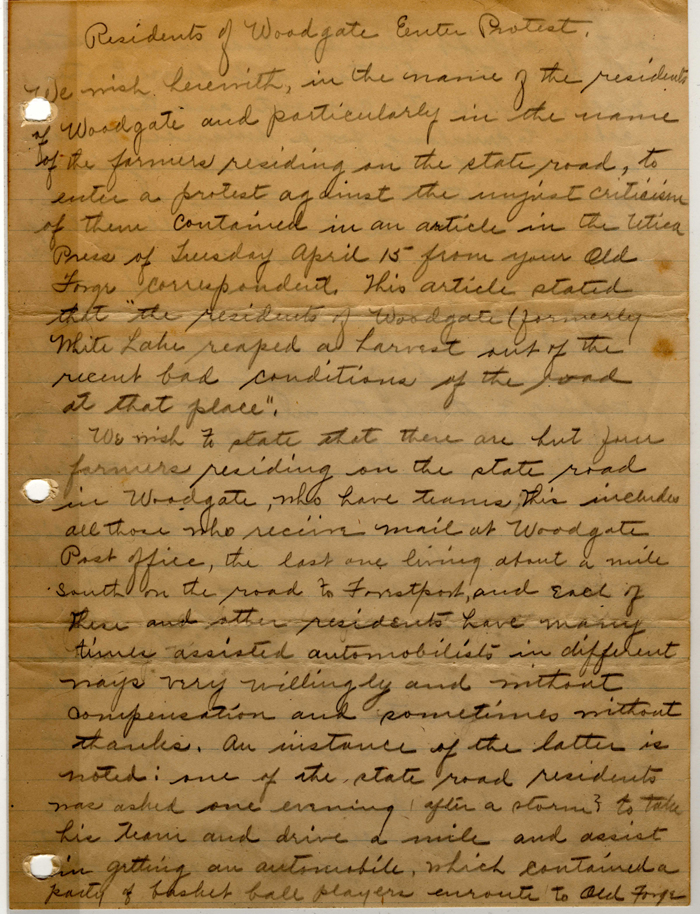 Residents of Woodgate Enter Protest.
We wish herewith, in the name of the residents
of Woodgate and particularly in the name
of the farmers residing on the state road, to
enter a protest against the unjust criticism
of them contained in an article in the Utica
Press of Tuesday April 15 from your Old
Forge correspondent. This article stated
that "the residents of Woodgate (formerly
White Lake reaped a harvest out of the
recent bad conditions of the road
at that place".
We wish to state that there are but four
farmers residing on the state road
in Woodgate, who have teams, this includes
all those who receive mail at Woodgate
Post office, the last one living about a mile
south on the road to Forestport, and each of
these and other residents have many
times assisted automobilists in different
ways very willingly and without
compensation and sometimes without
thanks. An instance of the latter is
noted: one of the state road residents
was asked one evening (after a storm) to take
his team and drive a mile and assist
in getting an automobile, which contained a
party of basket ball players enroute to Old Forge